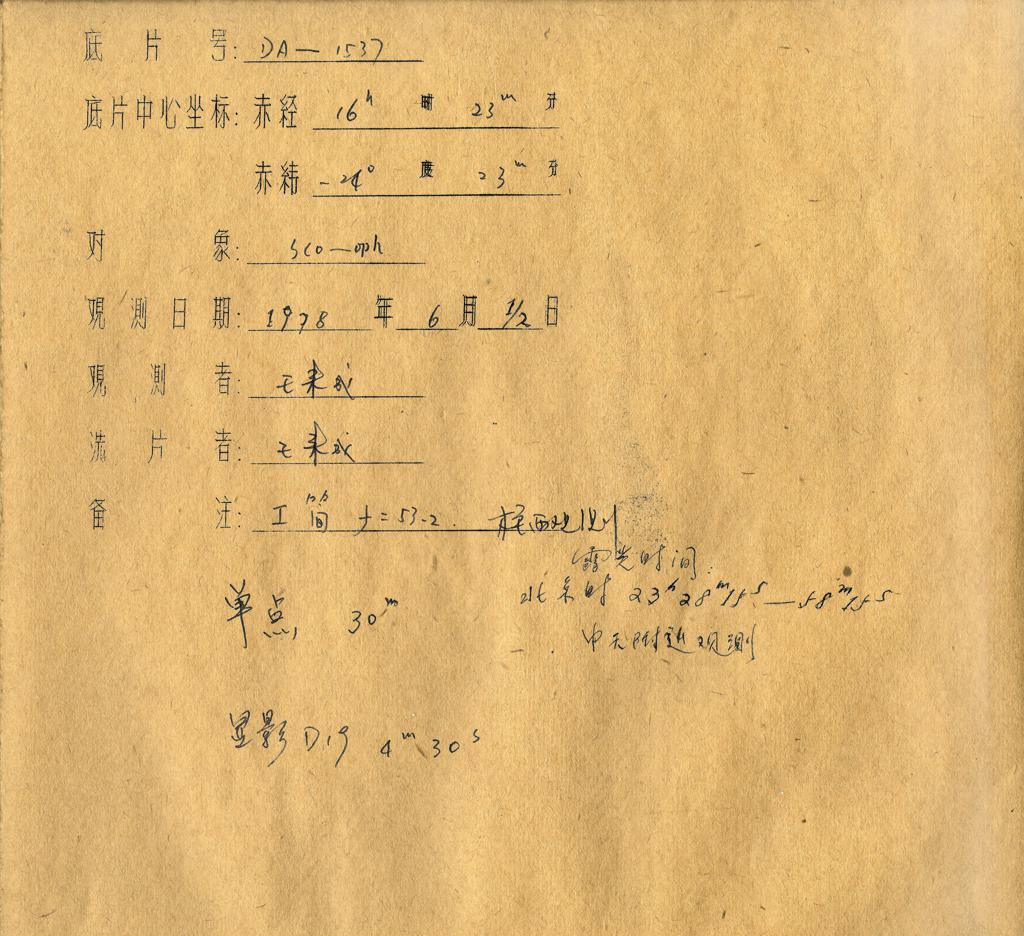 底片号: DA—1537
底片中心坐标: 赤经 16h 时 23m 分
赤纬 -24° 度 23m 分
对象: Sco—oph
观测日期: 1978 年 6 月 1/2 日
观测者: 王来成
洗片者: 王来成
备注: 工筒 f=53.2 观测
露光时间:
北京时 23h28m15s—58m15s
中天附近观测
单点 30m
显影 D19 4m30s